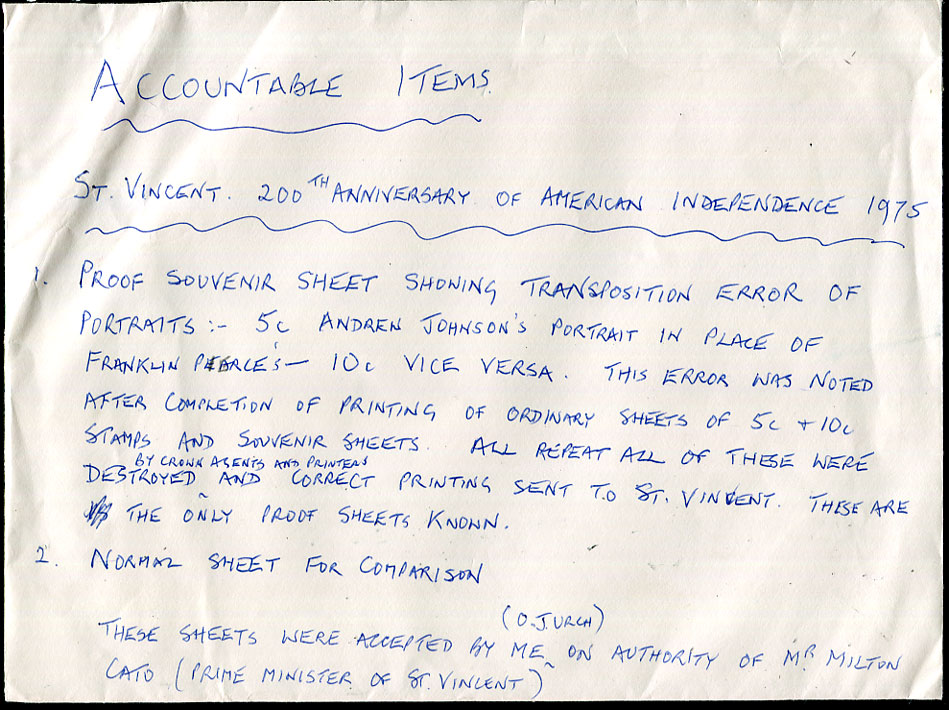 ACCOUNTABLE ITEMS
ST. VINCENT. 200TH ANNIVERSARY OF AMERICAN INDEPENDENCE 1975
1. PROOF SOUVENIR SHEET SHOWING TRANSPOSITION ERROR OF
PORTRAITS :- 5c ANDREW JOHNSON'S PORTRAIT IN PLACE OF
FRANKLIN PEARCE'S — 10c VICE VERSA. THIS ERROR WAS NOTED
AFTER COMPLETION OF PRINTING OF ORDINARY SHEETS OF 5c + 10c
STAMPS AND SOUVENIR SHEETS. ALL REPEAT ALL OF THESE WERE
BY CROWN AGENTS AND PRINTERS
DESTROYED ^ AND CORRECT PRINTING SENT TO ST. VINCENT. THESE ARE
THE ONLY PROOF SHEETS KNOWN.
2. NORMAL SHEET FOR COMPARISON
(O.J.URCH)
THESE SHEETS WERE ACCEPTED BY ME ^ ON AUTHORITY OF MR MILTON
CATO (PRIME MINISTER OF ST. VINCENT)